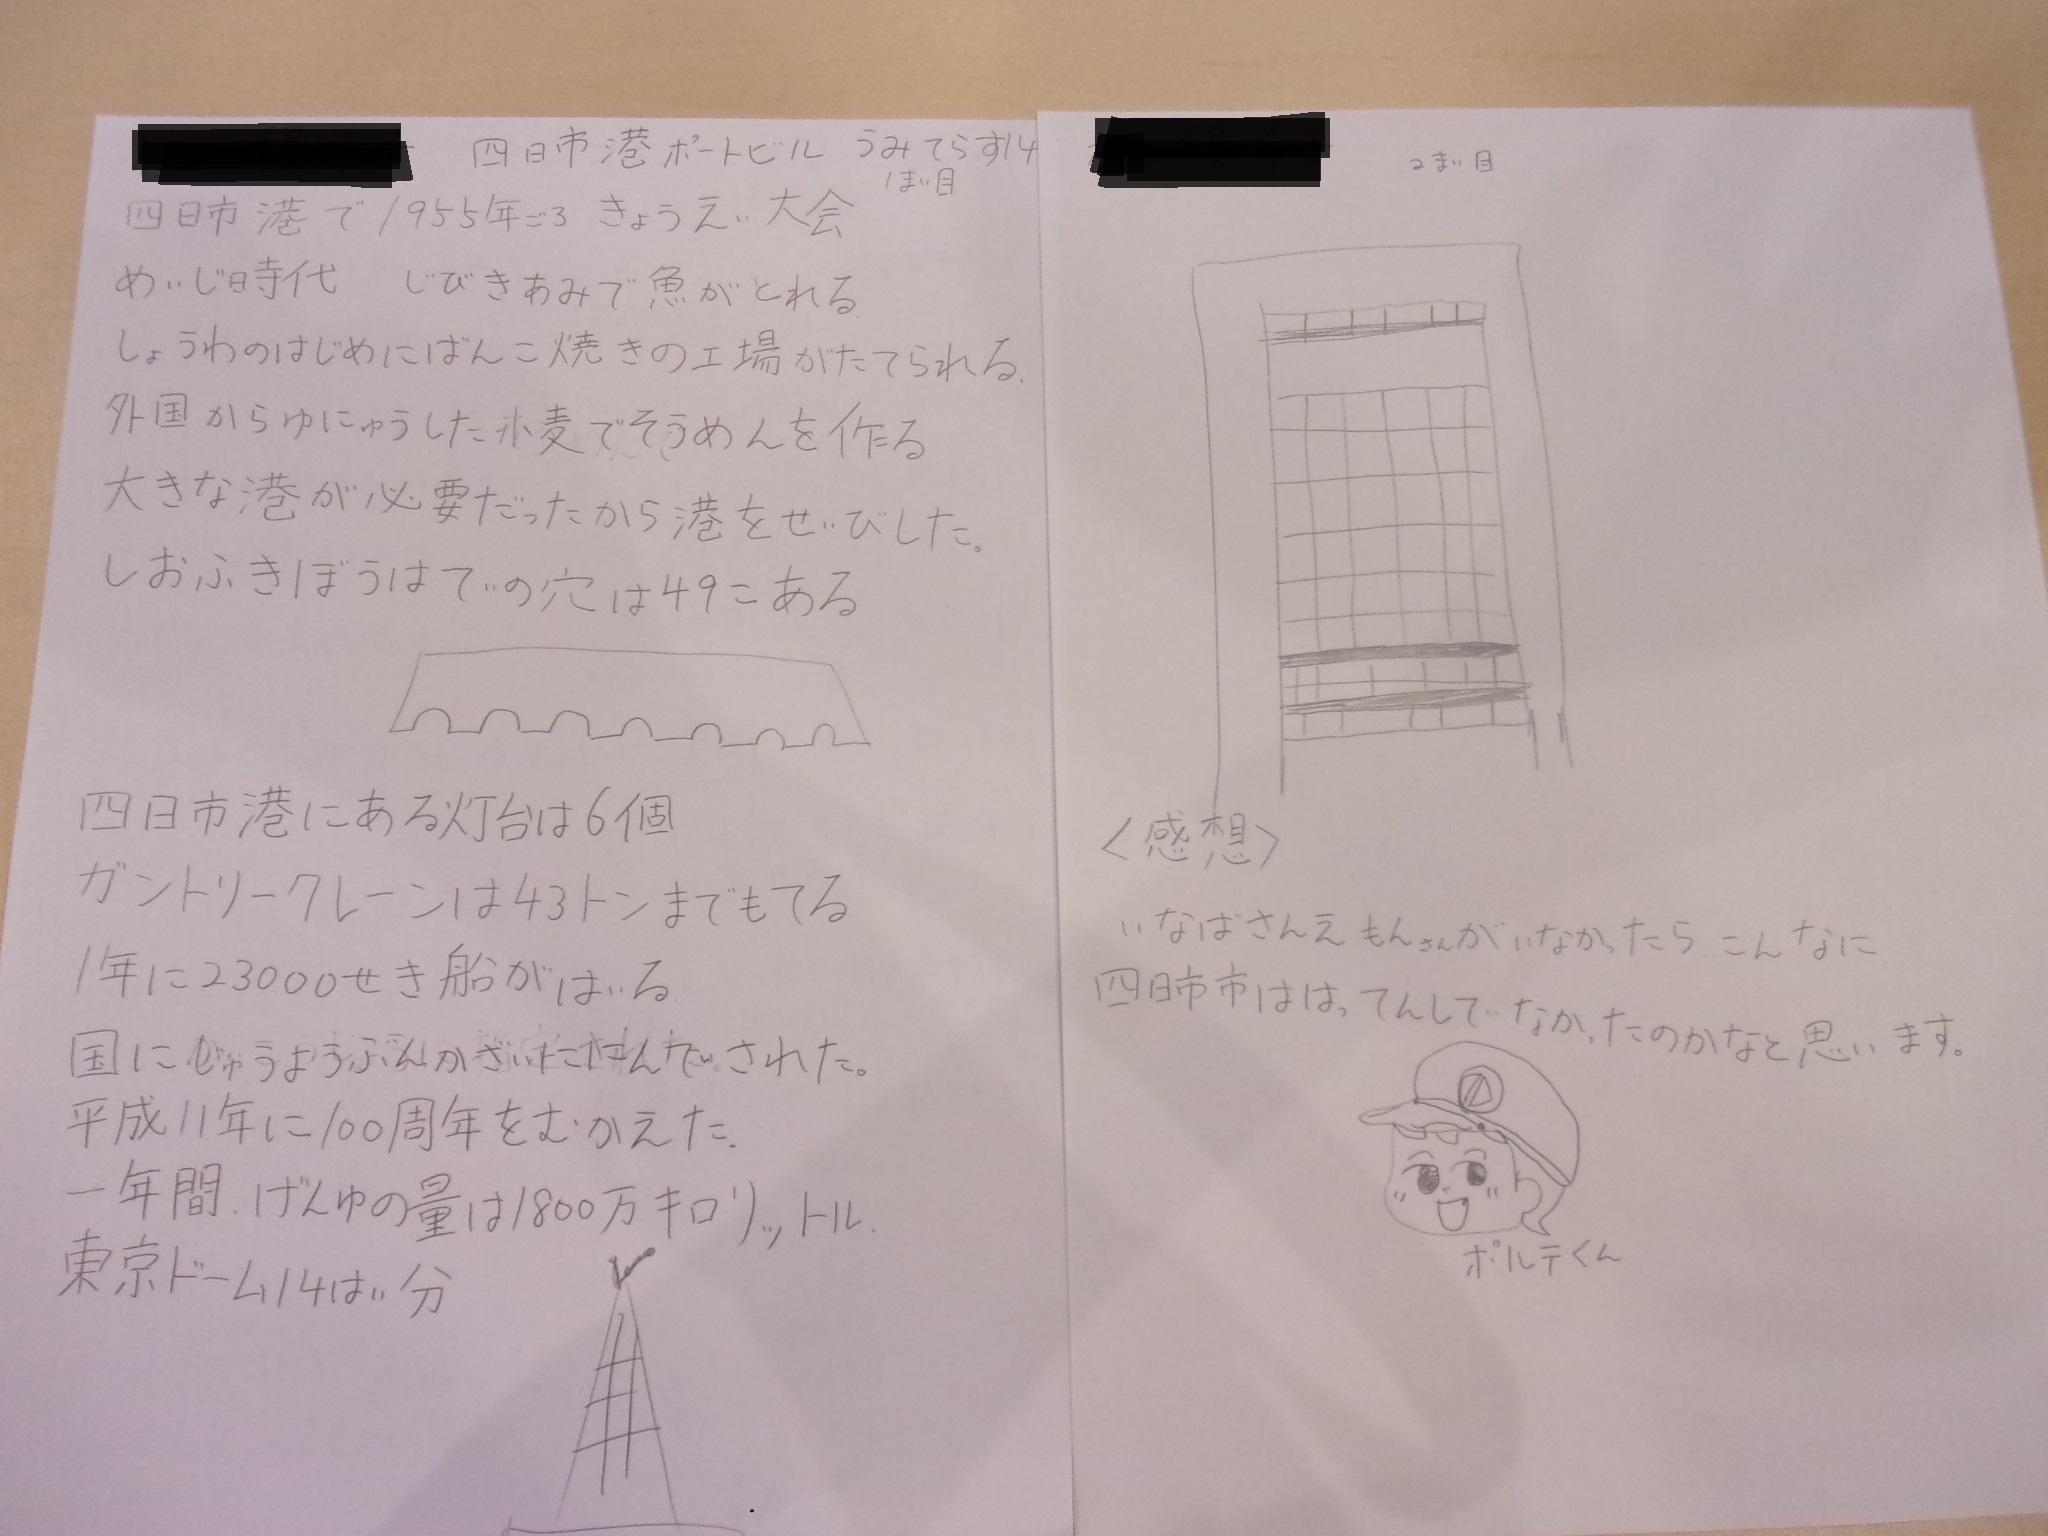 四日市港ポートビル うみてらす14
1まい目
四日市港で1955年ごろ きょうえい大会
めいじ時代 じびきあみで魚がとれる
しょうわのはじめにばんこ焼きの工場がたてられる.
外国からゆにゅうした小麦でそうめんを作る
大きな港が必要だったから港をせいびした。
しおふきぼうはていの穴は49こある
四日市港にある灯台は6個
ガントリークレーンは43トンまでもてる
1年に23000せき船がはいる
国にじゅうようぶんかざいに された。
平成11年に100周年をむかえた.
一年間.げんゆの量は1800万キロリットル.
東京ドーム14はい分
2まい目
〈感想〉
いなばさんえもんさんがいなかったらこんなに
四日市市ははってんしていなかったのかなと思います。
ポルテくん